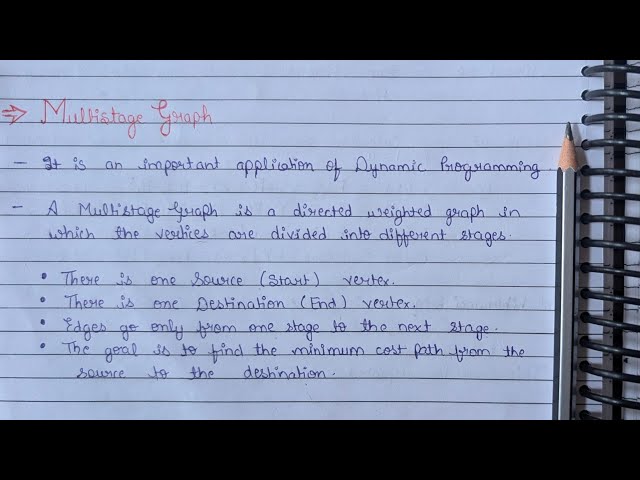 ⇒ Multistage Graph
- It is an important application of Dynamic Programming
- A Multistage Graph is a directed weighted graph in
which the vertices are divided into different stages.
• There is one Source (Start) vertex.
• There is one Destination (End) vertex.
• Edges go only from one stage to the next stage.
• The goal is to find the minimum cost path from the
source to the destination.